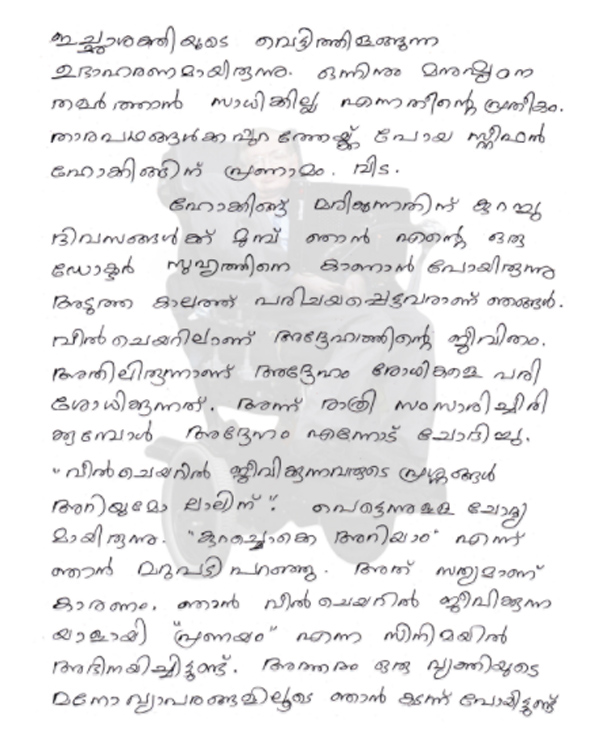 ഇച്ഛാശക്തിയുടെ വെട്ടിത്തിളങ്ങുന്ന
ഉദാഹരണമായിരുന്നു. ഒന്നിനും മനുഷ്യനെ
തളർത്താൻ സാധിക്കില്ല എന്നതിന്റെ പ്രതീകം.
താരപഥങ്ങൾക്കപ്പുറത്തേയ്ക്ക് പോയ സ്റ്റീഫൻ
ഹോക്കിങ്ങിന് പ്രണാമം. വിട.
ഹോക്കിങ്ങ് മരിക്കുന്നതിന് കുറച്ചു
ദിവസങ്ങൾക്ക് മുമ്പ് ഞാൻ എന്റെ ഒരു
ഡോക്ടർ സുഹൃത്തിനെ കാണാൻ പോയിരുന്നു
അടുത്ത കാലത്ത് പരിചയപ്പെട്ടവരാണ് ഞങ്ങൾ.
വീൽ ചെയറിലാണ് അദ്ദേഹത്തിന്റെ ജീവിതം.
അതിലിരുന്നാണ് അദ്ദേഹം രോഗികളെ പരി
ശോധിക്കുന്നത്. അന്ന് രാത്രി സംസാരിച്ചിരി
ക്കുമ്പോൾ അദ്ദേഹം എന്നോട് ചോദിച്ചു.
"വീൽചെയറിൽ ജീവിക്കുന്നവരുടെ പ്രശ്നങ്ങൾ
അറിയുമോ ലാലിന്". പെട്ടെന്നുള്ള ചോദ്യ
മായിരുന്നു. "കുറച്ചൊക്കെ അറിയാം" എന്ന്
ഞാൻ മറുപടി പറഞ്ഞു. അത് സത്യമാണ്
കാരണം, ഞാൻ വീൽചെയറിൽ ജീവിക്കുന്ന
യാളായി "പ്രണയം" എന്ന സിനിമയിൽ
അഭിനയിച്ചിട്ടുണ്ട്. അത്തരം ഒരു വ്യക്തിയുടെ
മനോവ്യാപരങ്ങളിലൂടെ ഞാൻ കടന്ന് പോയിട്ടുണ്ട്